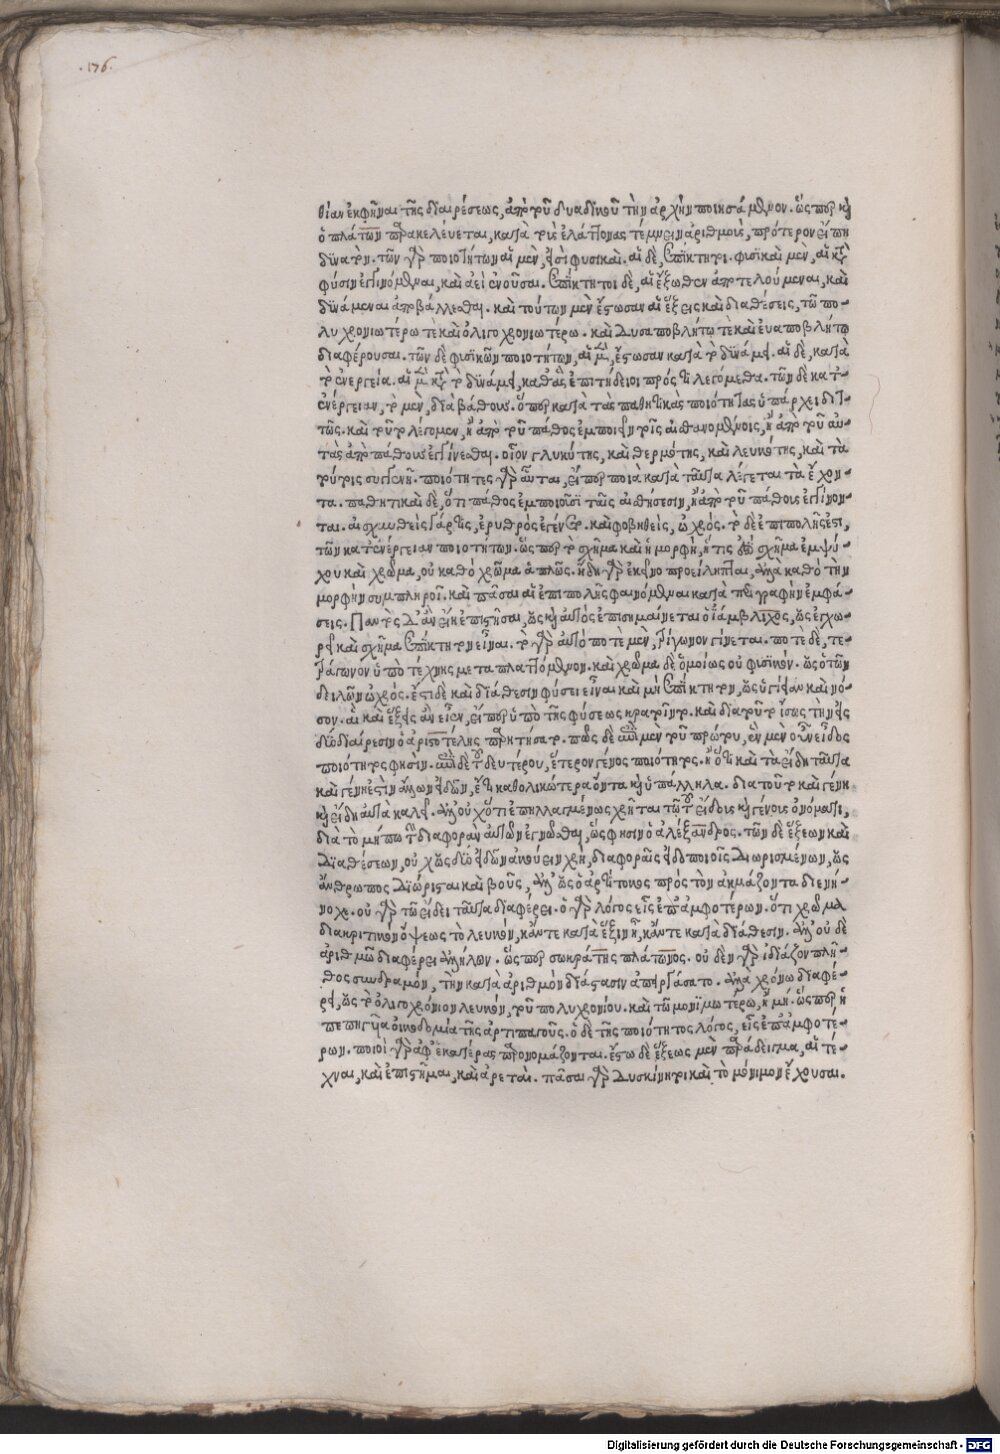 .176.
θίαν ἐκφῆναι τῆς διαιρέσεως, ἀπὸ τοῦ δυαδικοῦ τὴν ἀρχὴν ποιησάμενον. ὥσπερ καὶ
ὁ πλάτων παρακελεύεται, κατὰ τοὺς ἐλάττονας τέμνειν ἀριθμοὺς, πρότερον εἴπῃ
δύνατον. τῶν γὰρ ποιοτήτων αἱ μὲν, εἰσὶ φυσικαὶ. αἱ δὲ, ἐπίκτητοι. φυσικαὶ μὲν, αἱ κατὰ
φύσιν ἐγγινόμεναι, καὶ ἀεὶ ἐνοῦσαι. ἐπίκτητοι δὲ, αἱ ἔξωθεν ἀποτελούμεναι, καὶ
δυνάμεναι ἀποβάλλεσθαι. καὶ τούτων μὲν ἔστωσαν αἱ ἕξεις καὶ διαθέσεις, τῶ πο-
λυχρονιωτέρω τὲ καὶ ὀλιγοχρονιωτέρω. καὶ δυσαποβλήτω τὲ καὶ ἐυαποβλήτω
διαφέρουσαι. τῶν δὲ φυσικῶν ποιοτήτων, αἱ μὲν, ἔστωσαν κατὰ τὸ δυνάμει. αἱ δὲ, κατὰ
τὸ ἐνεργεία. αἱ μὲν κατὰ τὸ δυνάμει, καθ᾽ ἃς ἐπιτήδειοι πρός τι λεγόμεθα. τῶν δὲ κατ᾽
ἐνέργειαν, τὸ μὲν, διὰ βάθους. ὅπερ κατὰ τὰς παθητικὰς ποιότητας ὑπάρχει διτ-
τῶς. καὶ τοῦτο λέγομεν, ἢ ἀπὸ τοῦ πάθος ἐμποιεῖν τοῖς αἰσθανομένοις, ἢ ἀπὸ τοῦ αὐ-
τὰς ἀπὸ πάθους ἐγγίνεσθαι. οἷον γλυκύτης, καὶ θερμότης, καὶ λευκότης, καὶ τὰ
τούτοις συγγενῆ. ποιότητες γὰρ αὗται, εἴπερ ποιὰ κατὰ ταῦτα λέγεται τὰ ἔχον-
τα. παθητικαὶ δὲ, ὅτι πάθος ἐμποιοῦσι ταῖς αἰσθήσεσιν, ἢ ἀπὸ τοῦ πάθους ἐγγίνον-
ται. αἰσχυνθεὶς γάρ τις, ἐρυθρὸς ἐγένετο. καὶ φοβηθεὶς, ὠχρός. τὸ δὲ ἐπιπολῆς ἐστι,
τῶν κατ᾽ ἐνέργειαν ποιοτήτων. ὥσπερ τὸ σχῆμα καὶ ἡ μορφὴ, ἥτις ἐστὶ σχῆμα ἐμψύ-
χου καὶ χρῶμα, οὐ καθὸ χρῶμα ἁπλῶς. ἤδη γὰρ ἐκεῖνο προείληπται, ἀλλὰ καθὸ τὴν
μορφὴν συμπληροῖ. καὶ πᾶσαι αἱ ἐπιπολῆς φαινόμεναι κατὰ περιγραφὴν ἐμφά-
σεις. παντὸς δ᾽ ἂν εἴη ἐπιστῆσαι, ὡς καὶ αὐτὸς ἐπισημαίνεται ὁ ἰάμβλιχος, ὡς ἐγχω-
ρεῖ καὶ σχῆμα ἐπίκτητον εἶναι. τὸ γὰρ αὐτό ποτε μὲν, τρίγωνον γίνεται. ποτὲ δὲ, τε-
τράγωνον ὑπὸ τέχνης μεταπλαττόμενον. καὶ χρῶμα δὲ ὁμοίως οὐ φυσικόν. ὡς ὁ τῶν
δειλῶν ὠχρός. ἔστι δὲ καὶ διάθεσιν φύσει εἶναι καὶ μὴ ἐπίκτητον, ὡς ὑγίειαν καὶ νό-
σον. αἳ καὶ ἕξεις ἂν εἶεν, εἴπερ ὑπὸ τῆς φύσεως κρατοῖντο. καὶ διὰ τοῦτο ἴσως τὴν εἰς
δύο διαίρεσιν ὁ ἀριστοτέλης παρῃτήσατο. πῶς δὲ ἐπὶ μὲν τοῦ πρώτου, ἓν μὲν οὖν εἶδος
ποιότητος φησὶν. ἐπὶ δὲ τοῦ δευτέρου, ἕτερον γένος ποιότητος. ἢ ὅτι καὶ τὰ εἴδη ταῦτα
καὶ γένη ἐστὶν ἄλλων εἰδῶν, ἔτι καθολικώτερα ὄντα καὶ ὑπάλληλα. διὰ τοῦτο καὶ γένη
καὶ εἴδη αὐτὰ καλεῖ. ἀλλ᾽ οὐχ ὅτι ἐπηλλαγμένως χρῆται τῶ τοῦ εἴδους καὶ γένους ὀνόματι,
διὰ τὸ μήπω τὴν διαφορὰν αὐτῶν ἐγνῶσθαι, ὥς φησιν ὁ ἀλέξανδρος. τῶν δὲ ἕξεων καὶ
διαθέσεων, οὐχ ὡς δύο εἰδῶν ἀκούειν χρὴ, διαφοραῖς εἰδοποιοῖς διωρισμένων, ὡς
ἄνθρωπος διώρισται καὶ βοῦς, ἀλλ᾽ ὡς ὁ ἀρτίτοκος πρὸς τὸν ἀκμάζοντα διενή-
νοχε. οὐ γὰρ τῶ εἴδει ταῦτα διαφέρει. ὁ γὰρ λόγος εἷς ἐπ᾽ ἀμφοτέρων. ὅτι χρῶμα
διακριτικὸν ὄψεως τὸ λευκὸν, κἄντε κατὰ ἕξιν ᾖ, κἄντε κατὰ διάθεσιν. ἀλλ᾽ οὐδὲ
ἀριθμῶ διαφέρει ἀλλήλων. ὥσπερ σωκράτης πλάτωνος. οὐδὲν γὰρ ἰδιάζον πλῆ-
θος συνδραμὸν, τὴν κατὰ ἀριθμὸν διάστασιν ἀπειργάσατο. ἀλλὰ χρόνω διαφέ-
ρει, ὡς τὸ ὀλιγοχρόνιον λευκὸν, τοῦ πολυχρονίου. καὶ τῶ μονιμωτέρω, ἢ μή. ὥσπερ ἡ
πεπηγυῖα οἰκοδομία τῆς ἀρτιπαγοῦς. ὁ δὲ τῆς ποιότητος λόγος, εἷς ἐπ᾽ ἀμφοτέ-
ρων. ποιοὶ γὰρ ἀφ᾽ ἑκατέρας παρονομάζονται. ἔστω δὲ ἕξεως μὲν παράδειγμα, αἱ τέ-
χναι, καὶ ἐπιστῆμαι, καὶ ἀρεταὶ. πᾶσαι γὰρ δυσκίνητοι καὶ τὸ μόνιμον ἔχουσαι.
Digitalisierung gefördert durch die Deutsche Forschungsgemeinschaft - DFG